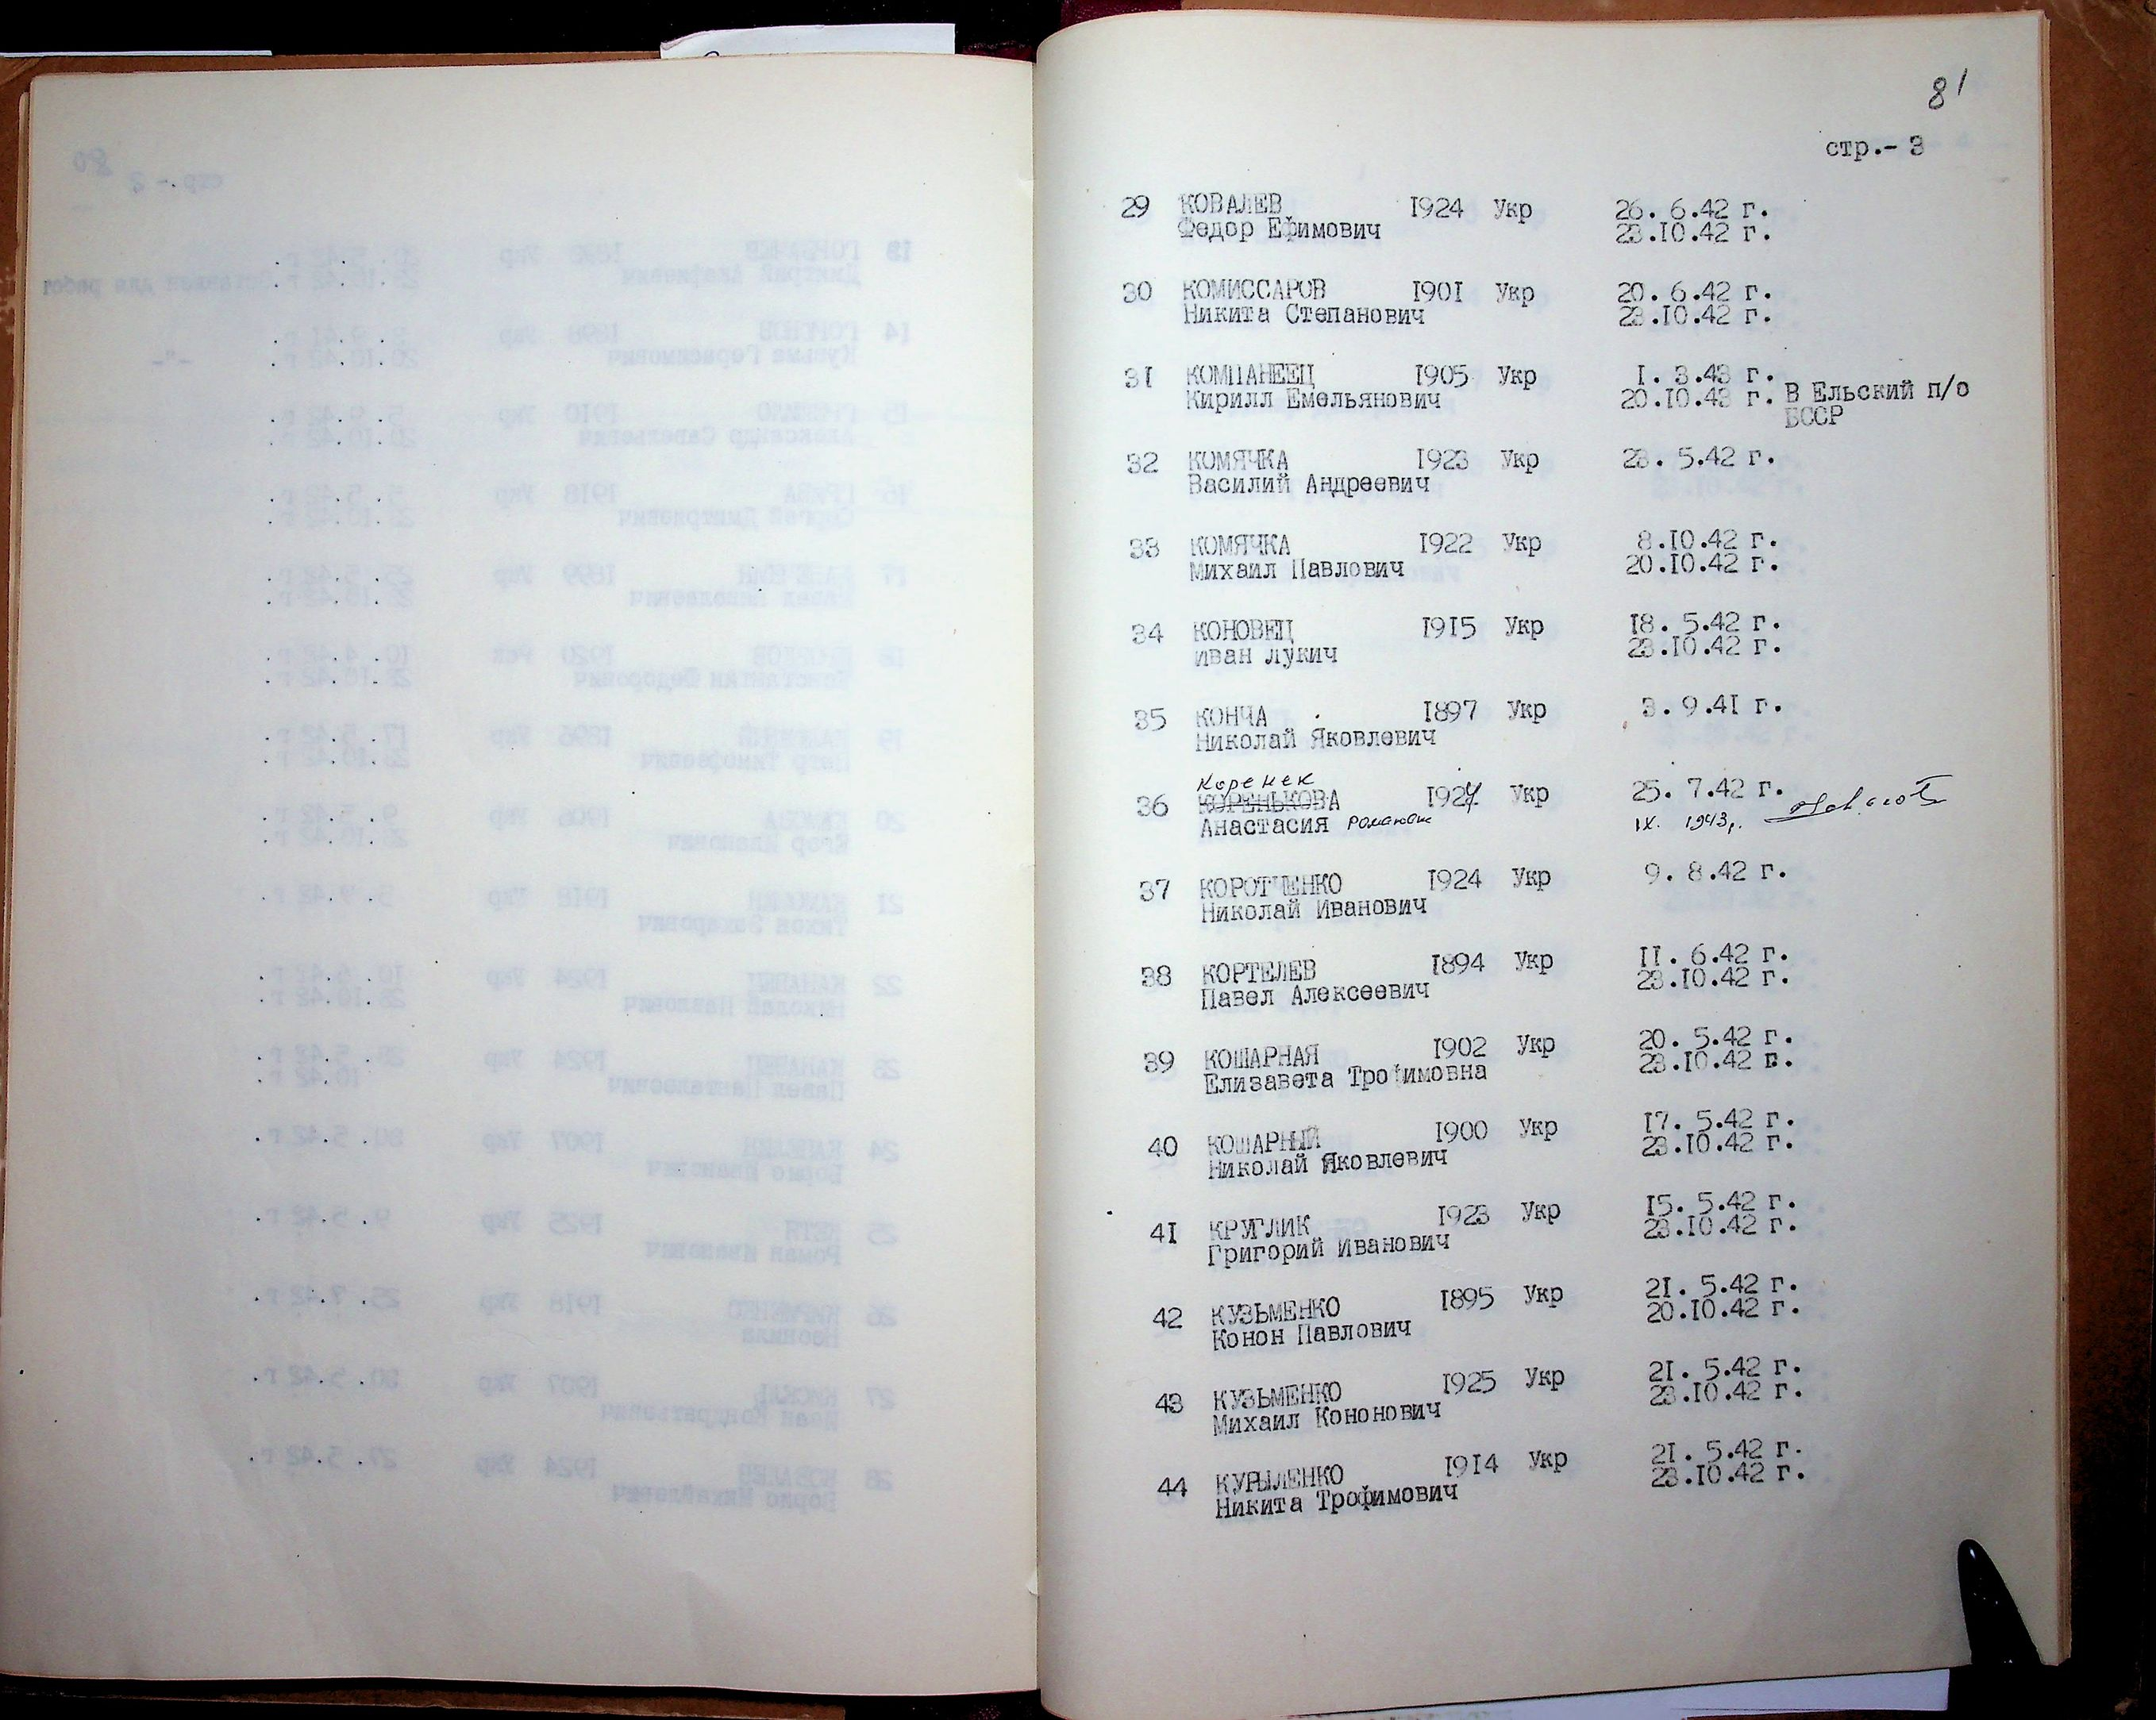 81
стр.- 3
29 КОВАЛЕВ 1924 Укр 26. 6.42 г.
Федор Ефимович 23.10.42 г.
30 КОМИССАРОВ 1901 Укр 20. 6.42 г.
Никита Степанович 23.10.42 г.
31 КОМПАНЕЕЦ 1905 Укр 1. 3.43 г.
Кирилл Емельянович 20.10.43 г. В Ельский п/о
БССР
32 КОМЯЧКА 1923 Укр 23. 5.42 г.
Василий Андреевич
33 КОМЯЧКА 1922 Укр 8.10.42 г.
Михаил Павлович 20.10.42 г.
34 КОНОВЕЦ 1915 Укр 18. 5.42 г.
Иван Лукич 23.10.42 г.
35 КОНЧА 1897 Укр 3. 9.41 г.
Николай Яковлевич
Коренек
36 КОРЕНЬКОВА 1927 Укр 25. 7.42 г.
Анастасия IX. 1943 г.
37 КОРОТЧЕНКО 1924 Укр 9. 8.42 г.
Николай Иванович
38 КОРТЕЛЕВ 1894 Укр 11. 6.42 г.
Павел Алексеевич 23.10.42 г.
39 КОШАРНАЯ 1902 Укр 20. 5.42 г.
Елизавета Трофимовна 23.10.42 г.
40 КОШАРНЫЙ 1900 Укр 17. 5.42 г.
Николай Яковлевич 23.10.42 г.
41 КРУГЛИК 1923 Укр 15. 5.42 г.
Григорий Иванович 23.10.42 г.
42 КУЗЬМЕНКО 1895 Укр 21. 5.42 г.
Конон Павлович 20.10.42 г.
43 КУЗЬМЕНКО 1925 Укр 21. 5.42 г.
Михаил Кононович 23.10.42 г.
44 КУРЫЛЕНКО 1914 Укр 21. 5.42 г.
Никита Трофимович 23.10.42 г.